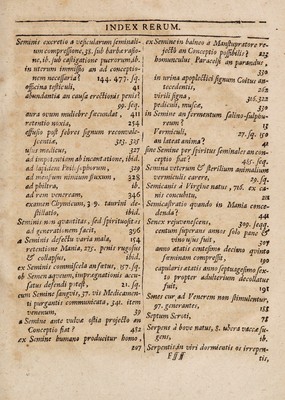 INDEX RERUM.
Seminis excretio a vesicularum seminali-
um compressione, 35. sub barba raso-
ne, ib. sub castigatione puerorum, ib.
in uterum immissio an ad conceptio-
nem necessaria? 144. 477. sq.
officina testiculi, 41
abundantia an causa erectionis penis?
39. seq.
aura ovum muliebre fœcundat, 411
retentio noxia, 254
effusio post febres signum reconvale-
scentia, 323. 325
usus medicus, 327
ad impotentiam ab incantatione, ibid.
ad lapidem Philosophorum, 329
ad mensium nimium fluxum, 328
ad philtra, ib.
ad rem venream, 346
examen Chymicum, 3. 9. taurini de-
stillatio, ibid.
Seminis non quantitas, sed spirituositas
ad generationem facit, 396
a Seminis defectu varia mala, 154
retentione Mania, 225. penis rugosus
& collapsus, ibid.
ex Seminis commiscela an fœtus, 157. sq.
ob Semen apyum, impregnationis accu-
satus defendi potest, 21. sq.
cum Semine sanguis, 37. vis Medicamen-
ti purgantis communicata, 341. item
venenum, 39
a Semine ante vulvæ ostia projecto an
Conceptio fiat? 482
ex Semine humano producitur homo,
207
ex Semine in balneo a Manstupratore re-
jecto an Conceptio possibilis? 122
homunculus Paracelsi an parandus,
330
in urina apoplectici signum Coitus an-
tecedentis, 262
virili signa, 316. 322
pediculi, muscæ, 11
in Semine an fermentum salino-sulphu-
reum? 13
Vermiculi, 77. sq. 150
an lateat anima? 41
sine Semine per spiritus seminales an con-
ceptio fiat? 485. seq.
Semina veterum & sterilium animalium
vermiculis carere, 79. sq.
Semicanis è Virgine natus, 716. ex ca-
nis concubitu, 201
Semicastratio quando in Mania conce-
denda? 441
Senex rejuvenescens, 309. seq.
centum superans annos solo pane &
vino usus fuit, 307
anno ætatis centesimo decimo quinto
fœminam compressit, 190
capularis ætatis anno septuagesimo sex-
to propter adulterium decollatus
fuit, 198
Senes cur ad Venerem non stimulentur,
97. generantes, 188
Septum Scroti, 78
Serpens è bove natus, 8. ubera vaccæ su-
gens, ib.
Serpentis in viri dormientis os irrepen-
Ffff tis,